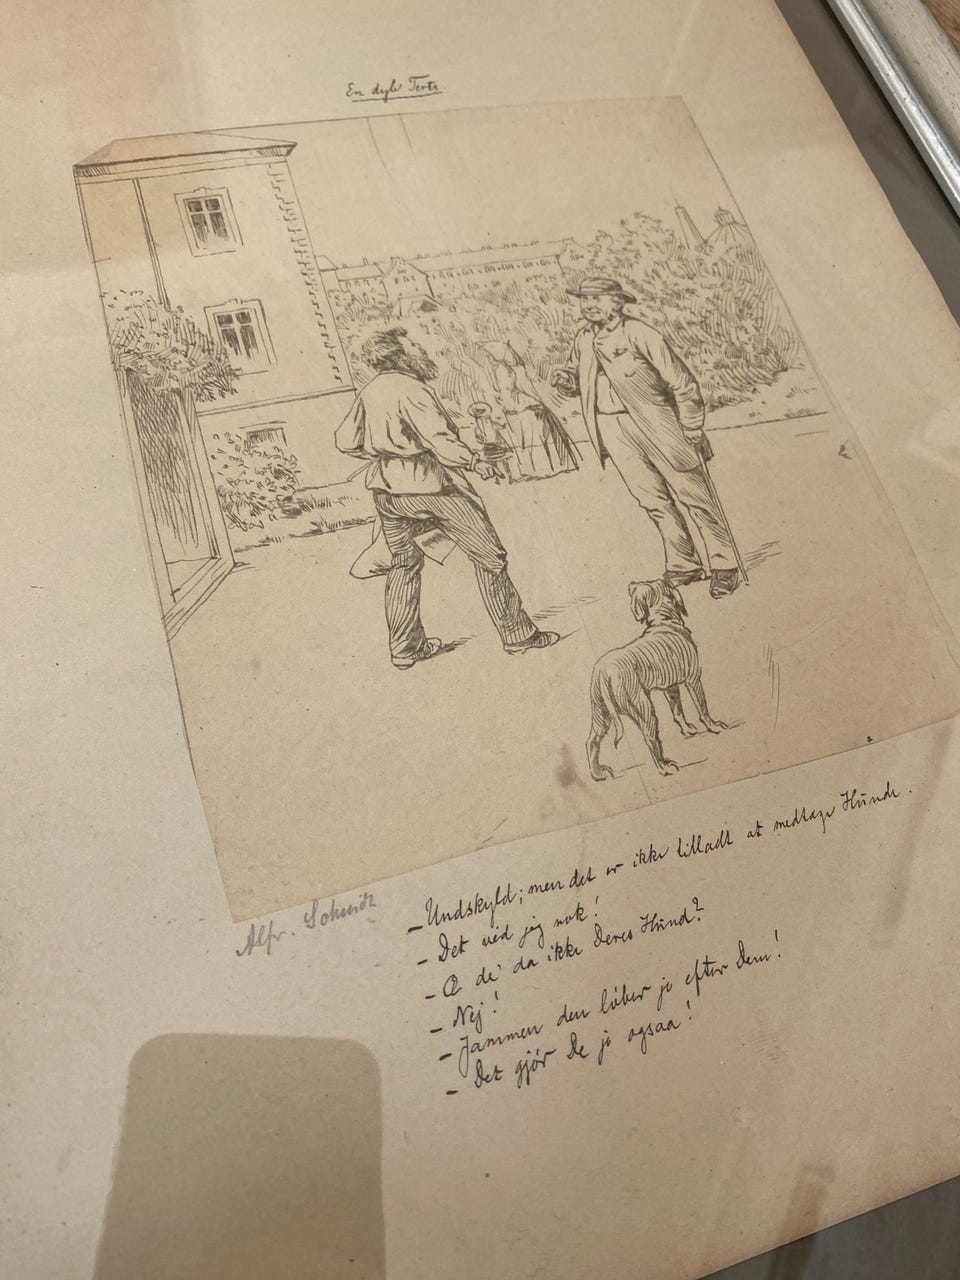 En dyb Terts.
Alfr. Schmidt
– Undskyld; men det er ikke tilladt at medtage Hunde.
– Det véd jeg nok!
– Æ de' da ikke Deres Hund?
– Nej!
– Jammen den løber jo efter Dem!
– Det gjør De jo ogsaa!